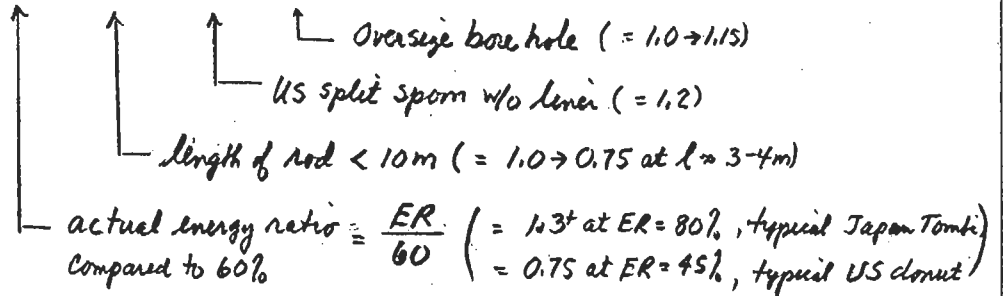 Oversize bore hole ( = 1.0→1.15)
US split spoon w/o liner ( = 1.2)
length of rod < 10m ( = 1.0→0.75 at l ≈ 3-4m)
actual energy ratio = ER/60 ( = 1.3+ at ER = 80%, typical Japan Tombi
compared to 60% = 0.75 at ER = 45%, typical US donut )